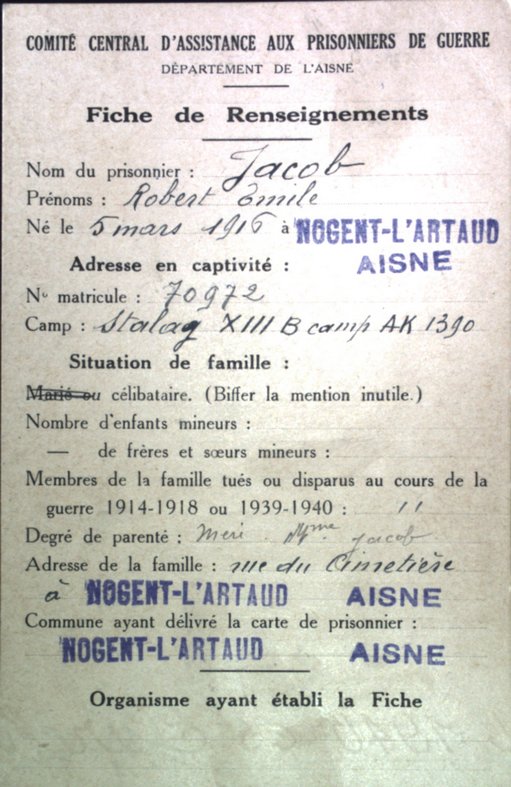 COMITÉ CENTRAL D'ASSISTANCE AUX PRISONNIERS DE GUERRE
DÉPARTEMENT DE L'AISNE
Fiche de Renseignements
Nom du prisonnier : Jacob
Prénoms : Robert Emile
Né le 5 mars 1916 à NOGENT-L'ARTAUD
AISNE
Adresse en captivité :
No matricule : 70972
Camp : Stalag XIII B camp AK 1390
Situation de famille :
Marié ou célibataire. (Biffer la mention inutile.)
Nombre d'enfants mineurs :
— de frères et sœurs mineurs :
Membres de la famille tués ou disparus au cours de la
guerre 1914-1918 ou 1939-1940 : 11
Degré de parenté : Meri Mme Jacob
Adresse de la famille : rue du Cimetière
à NOGENT-L'ARTAUD AISNE
Commune ayant délivré la carte de prisonnier :
NOGENT-L'ARTAUD AISNE
Organisme ayant établi la Fiche